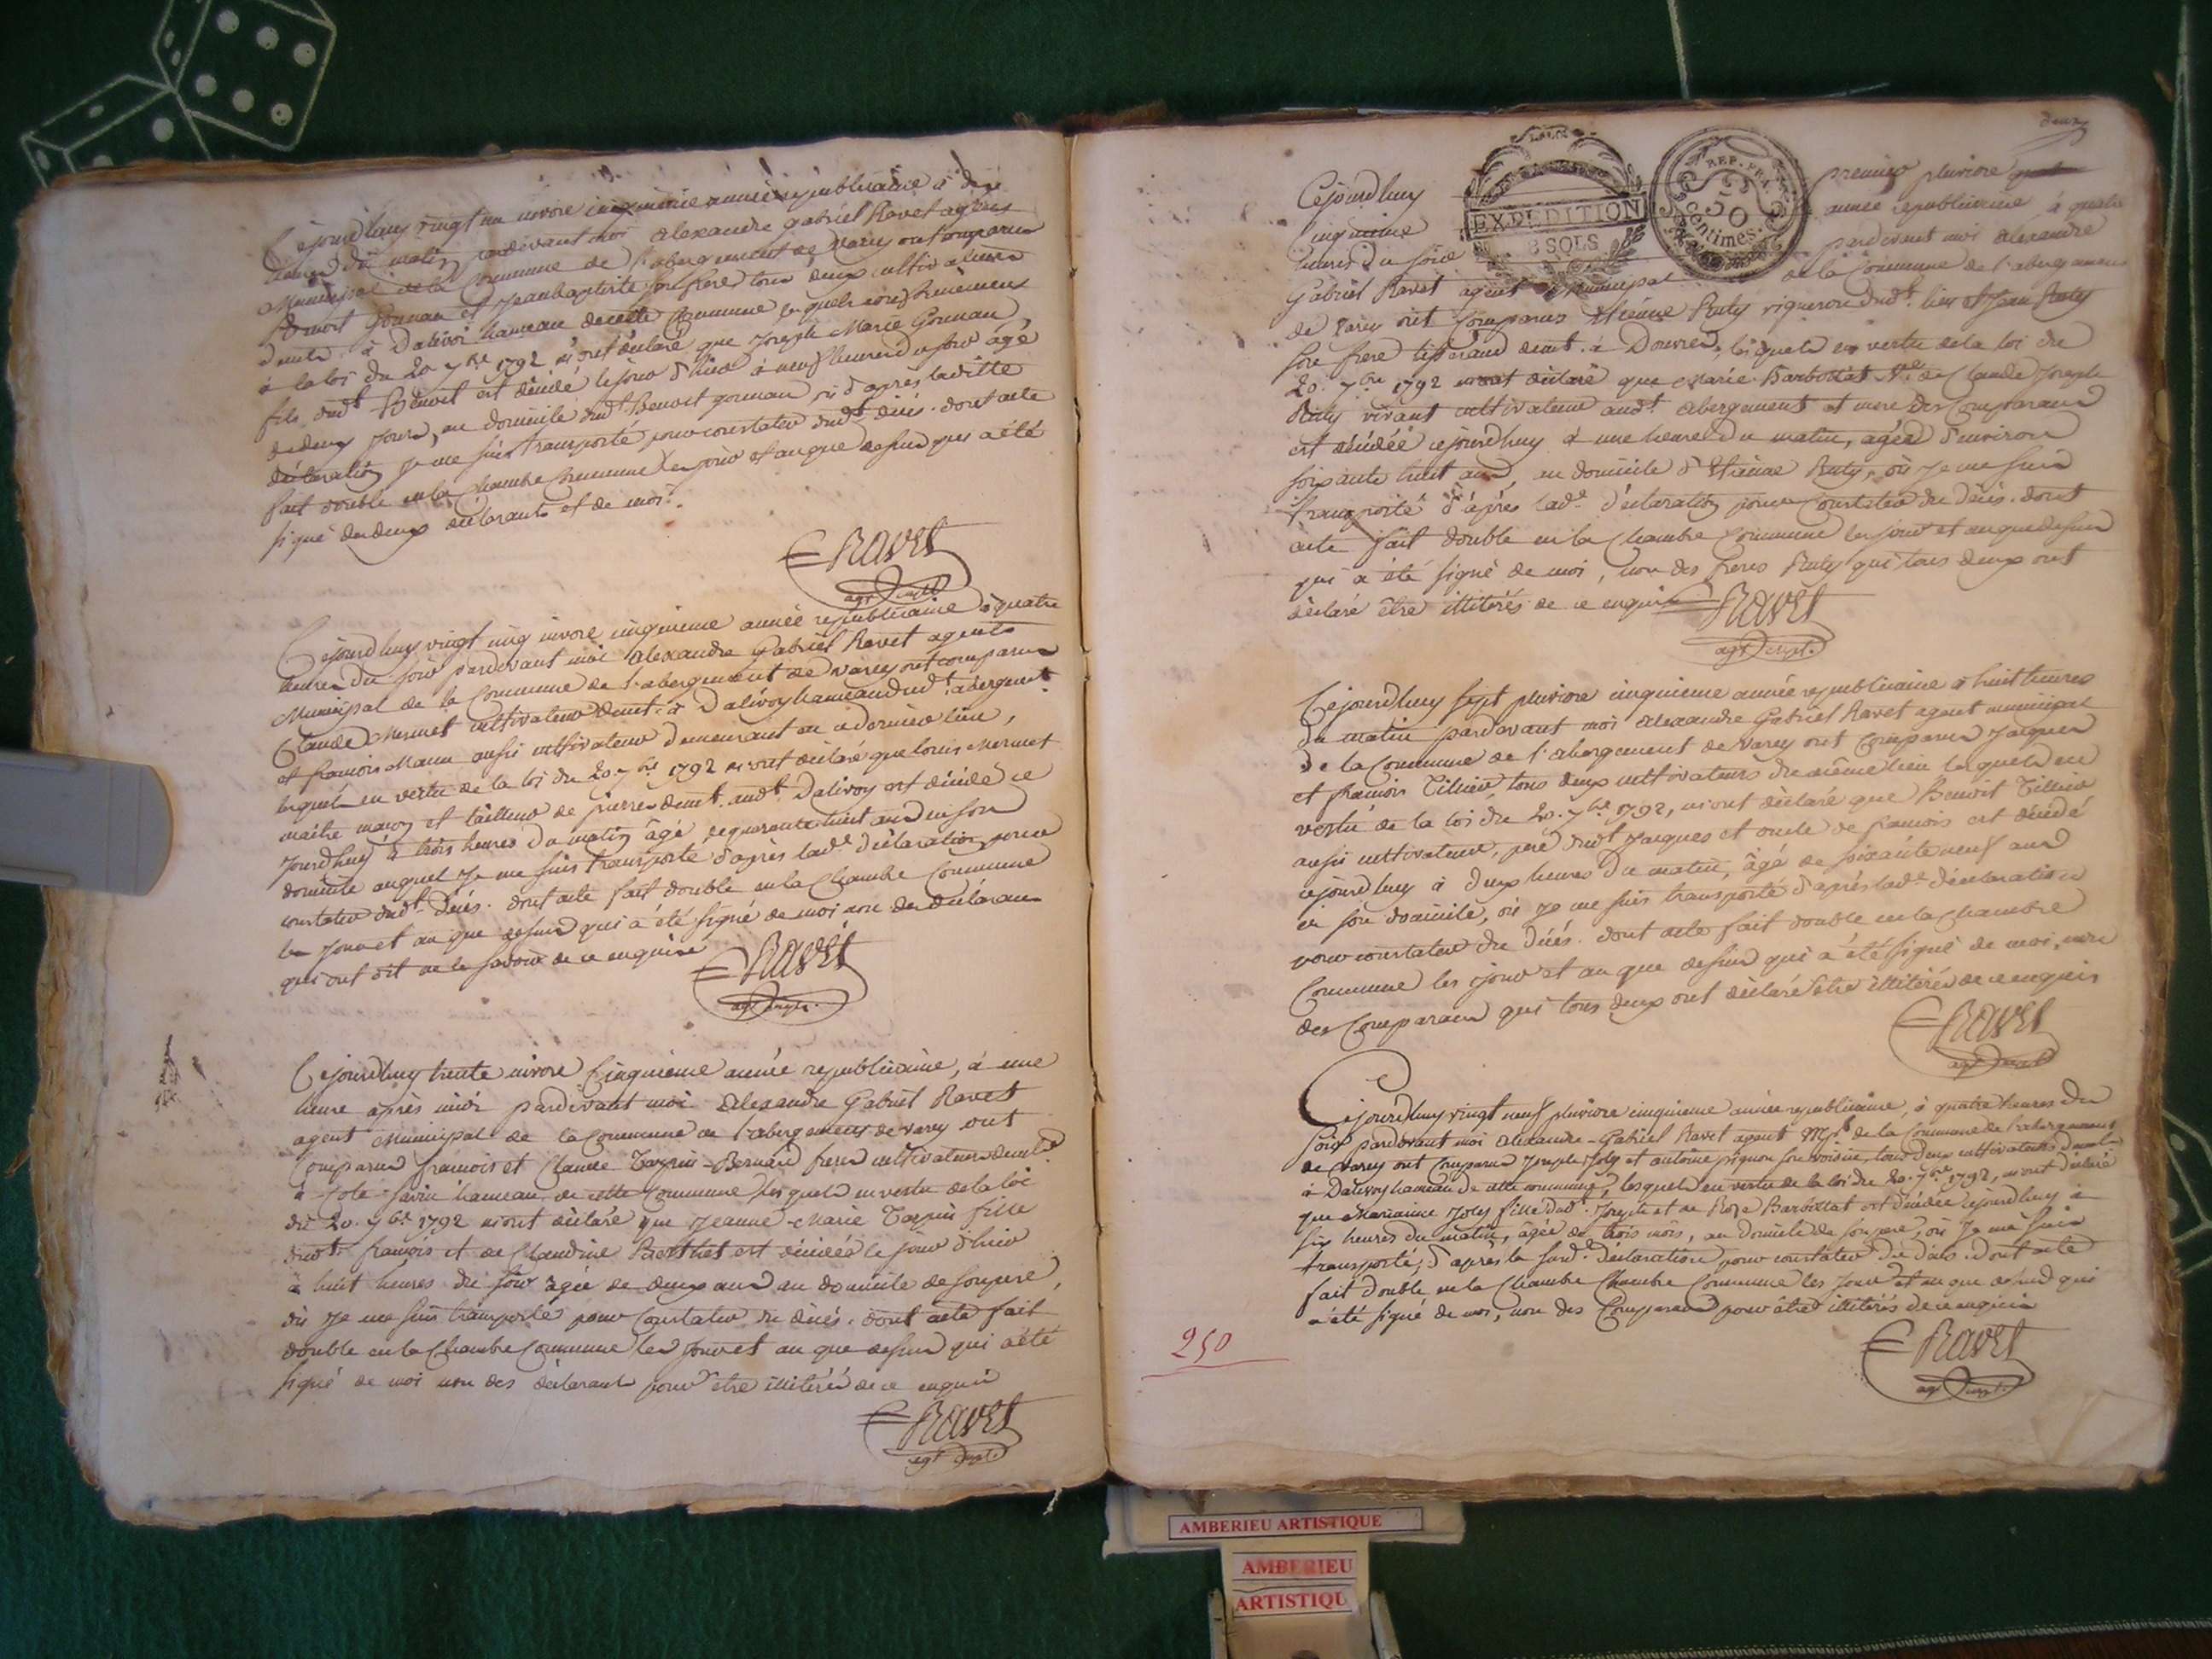 Cejourdhuy vingt un nivose cinquième année republicaine à dix
heures du matin pardevant moi Alexandre Gabriel Ravet agent
Municipal de la Commune de l'abergement de varey ont comparu
Benoit Gonnan et Jeanbaptiste son frere tous deux cultivateurs
demts. à Dalivoi hameau de cette Commune lesquels conformement
à la loi du 20 7bre 1792 m'ont déclaré que Joseph Marie Gonnan
fils dudt Benoit est décédé le jour d'hier à neuf heures du soir âgé
de deux jours, au domicile dudt Benoit gonnan où d'après laditte
déclaration je me suis transporté pour constater dudt décès. dont acte
fait double en la Chambre Commune les jour et an que dessus qui a été
signé des deux déclarants et de moi.
Ravet
agt mpl.
Cejourdhuy vingt cinq nivose cinquieme année republicaine à quatre
heures du soir pardevant moi Alexandre Gabriel Ravet agent
Municipal de la Commune de l'abergement de varey ont comparu
Claude Mermet cultivateur demt. à Dalivoy hameau dudt. abergement
et francois Manu aussi cultivateur demeurant au dernier lieu,
lesquels en vertu de la loi du 20 7bre 1792 m'ont déclaré que louis Mermet
maitre maçon et tailleur de pierres demt. audt. Dalivoy est décédé ce
jourdhuy à trois heures du matin âgé de quarante huit ans en son
domicile auquel je me suis transporté d'après lade déclaration pour
constater dudt. décès. dont acte fait double en la Chambre Commune
les jour et an que dessus qui a été signé de moi non des déclarans
qui ont dit ne le savoir de ce enquis
Ravet
agt mpl.
Cejourdhuy trente nivose Cinquieme année republicaine, à une
heure après midi pardevant moi Alexandre Gabriel Ravet
agent Municipal de la Commune de l'abergement de varey ont
Comparu francois et Claude Tarpin-Bernard freres cultivateurs demts.
à Côte-Savin hameau de cette Commune lesquels en vertu de la loi
du 20. 7bre 1792 m'ont déclaré que Jeanne-Marie Tarpin fille
dudt. francois et de Claudine Berthet est décédée le jour d'hier
à huit heures du soir âgée de deux ans au domicile de son pere,
où je me suis transporté pour Constater du décès. dont acte fait
double en la Chambre Commune les jour et an que dessus qui a été
signé de moi non des déclarants pour être illitérés de ce enquis
Ravet
agt mpl.
deux
LA LOI
EXPEDITION
8 SOLS
REP. FRA.
50
Centimes.
Cejourdhuy premier pluviose
cinquieme année republicaine à quatre
heures du soir pardevant moi Alexandre
Gabriel Ravet agent Municipal de la Commune de l'abergement
de varey ont Comparus Etienne Ruty vigneron dudt. lieu et Jean Ruty
son frere tisserand demt. à Douvres, lesquels en vertu de la loi du
20. 7bre 1792 m'ont déclaré que Marie Barbollat Ve. de Claude Joseph
Ruty vivant cultivateur audt. abergement et mere des Comparans
est décédée cejourdhuy à une heure du matin, agée d'environ
soixante huit ans, au domicile d'Etienne Ruty, où je me suis
transporté d'après lade. déclaration pour Constater du décès. dont
acte fait double en la Chambre Commune les jour et an que dessus
qui a été signé de moi, non des freres Ruty qui tous deux ont
déclaré être illitérés de ce enquis
Ravet
agt mpl.
Cejourdhuy sept pluviose cinquieme année republicaine à huit heures
du matin pardevant moi Alexandre Gabriel Ravet agent municipal
de la Commune de l'abergement de varey ont Comparu Jacques
et francois Tillier, tous deux cultivateurs du même lieu lesquels en
vertu de la loi du 20. 7bre 1792, m'ont déclaré que Benoit Tillier
aussi cultivateur, pere dudt Jacques et oncle de francois est décédé
cejourdhuy à deux heures du matin, âgé de soixante neuf ans
en son domicile, où je me suis transporté d'après lade. déclaration
pour constater du décés. dont acte fait double en la Chambre
Commune les jour et an que dessus qui a été signé de moi, non
des Comparans qui tous deux ont déclaré être illitérés de ce enquis
Ravet
agt mpl.
Cejourdhuy vingt neuf pluviose cinquieme année republicaine, à quatre heures du
soir pardevant moi Alexandre-Gabriel Ravet agent Mpl. de la Commune de l'abergement
de varey ont Comparu Joseph Joly et antoine pignon son voisin, tous deux cultivateurs demts.
à Dalivoy hameau de cette commune, lesquels en vertu de la loi du 20. 7bre 1792, m'ont déclaré
que Marianne Joly fille dudt. Joseph et de Roze Barbollat est décédée cejourdhuy à
six heures du matin, âgée de trois mois, au domicile de son pere, où je me suis
transporté, d'après la susde. déclaration pour constater du décès. Dont acte
fait double en la Chambre Chambre Commune les jour et an que dessus qui
a été signé de moi, non des Comparans pour être illitérés de ce enquis
Ravet
agt mpl.
250
AMBERIEU ARTISTIQUE
AMBERIEU
ARTISTIQU